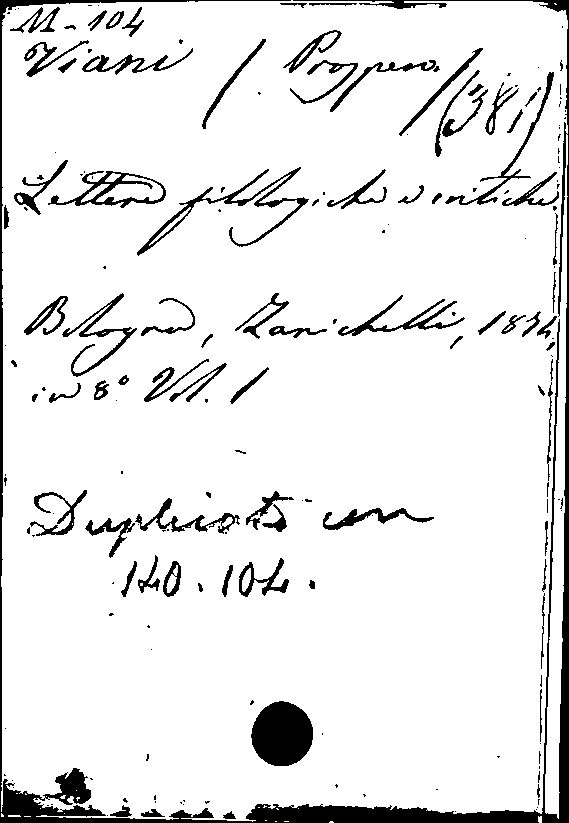 M-104
Viani / Prospero. / (381)
Lettere filologiche e critiche.
Bologna, Zanichelli, 1874,
in 8° Vol. 1
Duplicato con
140.104.